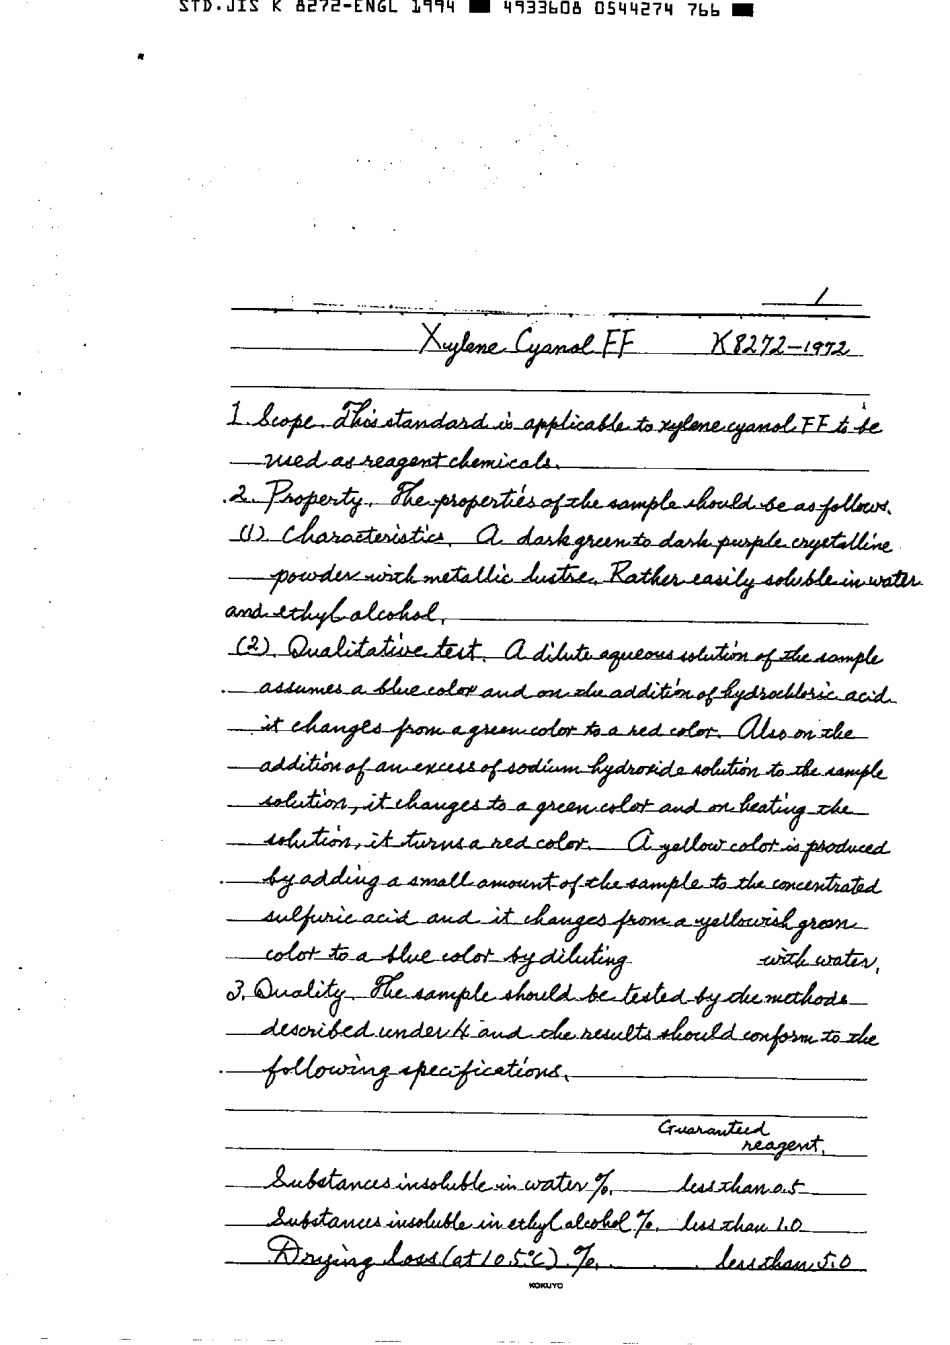 STD.JIS K 8272-ENGL 1994 ■ 4933608 0544274 766 ■
1
Xylene Cyanol FF K8272-1972
1. Scope. This standard is applicable to xylene cyanol FF to be
used as reagent chemicals.
2. Property. The properties of the sample should be as follows.
(1). Characteristics. A dark green to dark purple crystalline
powder with metallic lustre. Rather easily soluble in water
and ethyl alcohol.
(2). Qualitative test. A dilute aqueous solution of the sample
assumes a blue color and on the addition of hydrochloric acid
it changes from a green color to a red color. Also on the
addition of an excess of sodium hydroxide solution to the sample
solution, it changes to a green color and on heating the
solution, it turns a red color. A yellow color is produced
by adding a small amount of the sample to the concentrated
sulfuric acid and it changes from a yellowish green
color to a blue color by diluting with water.
3. Quality. The sample should be tested by the methods
described under 4 and the results should conform to the
following specifications.
Guaranteed
reagent.
Substances insoluble in water %. less than 0.5
Substances insoluble in ethyl alcohol %. less than 1.0
Drying loss (at 105°C). %. less than 5.0
KOKUYO